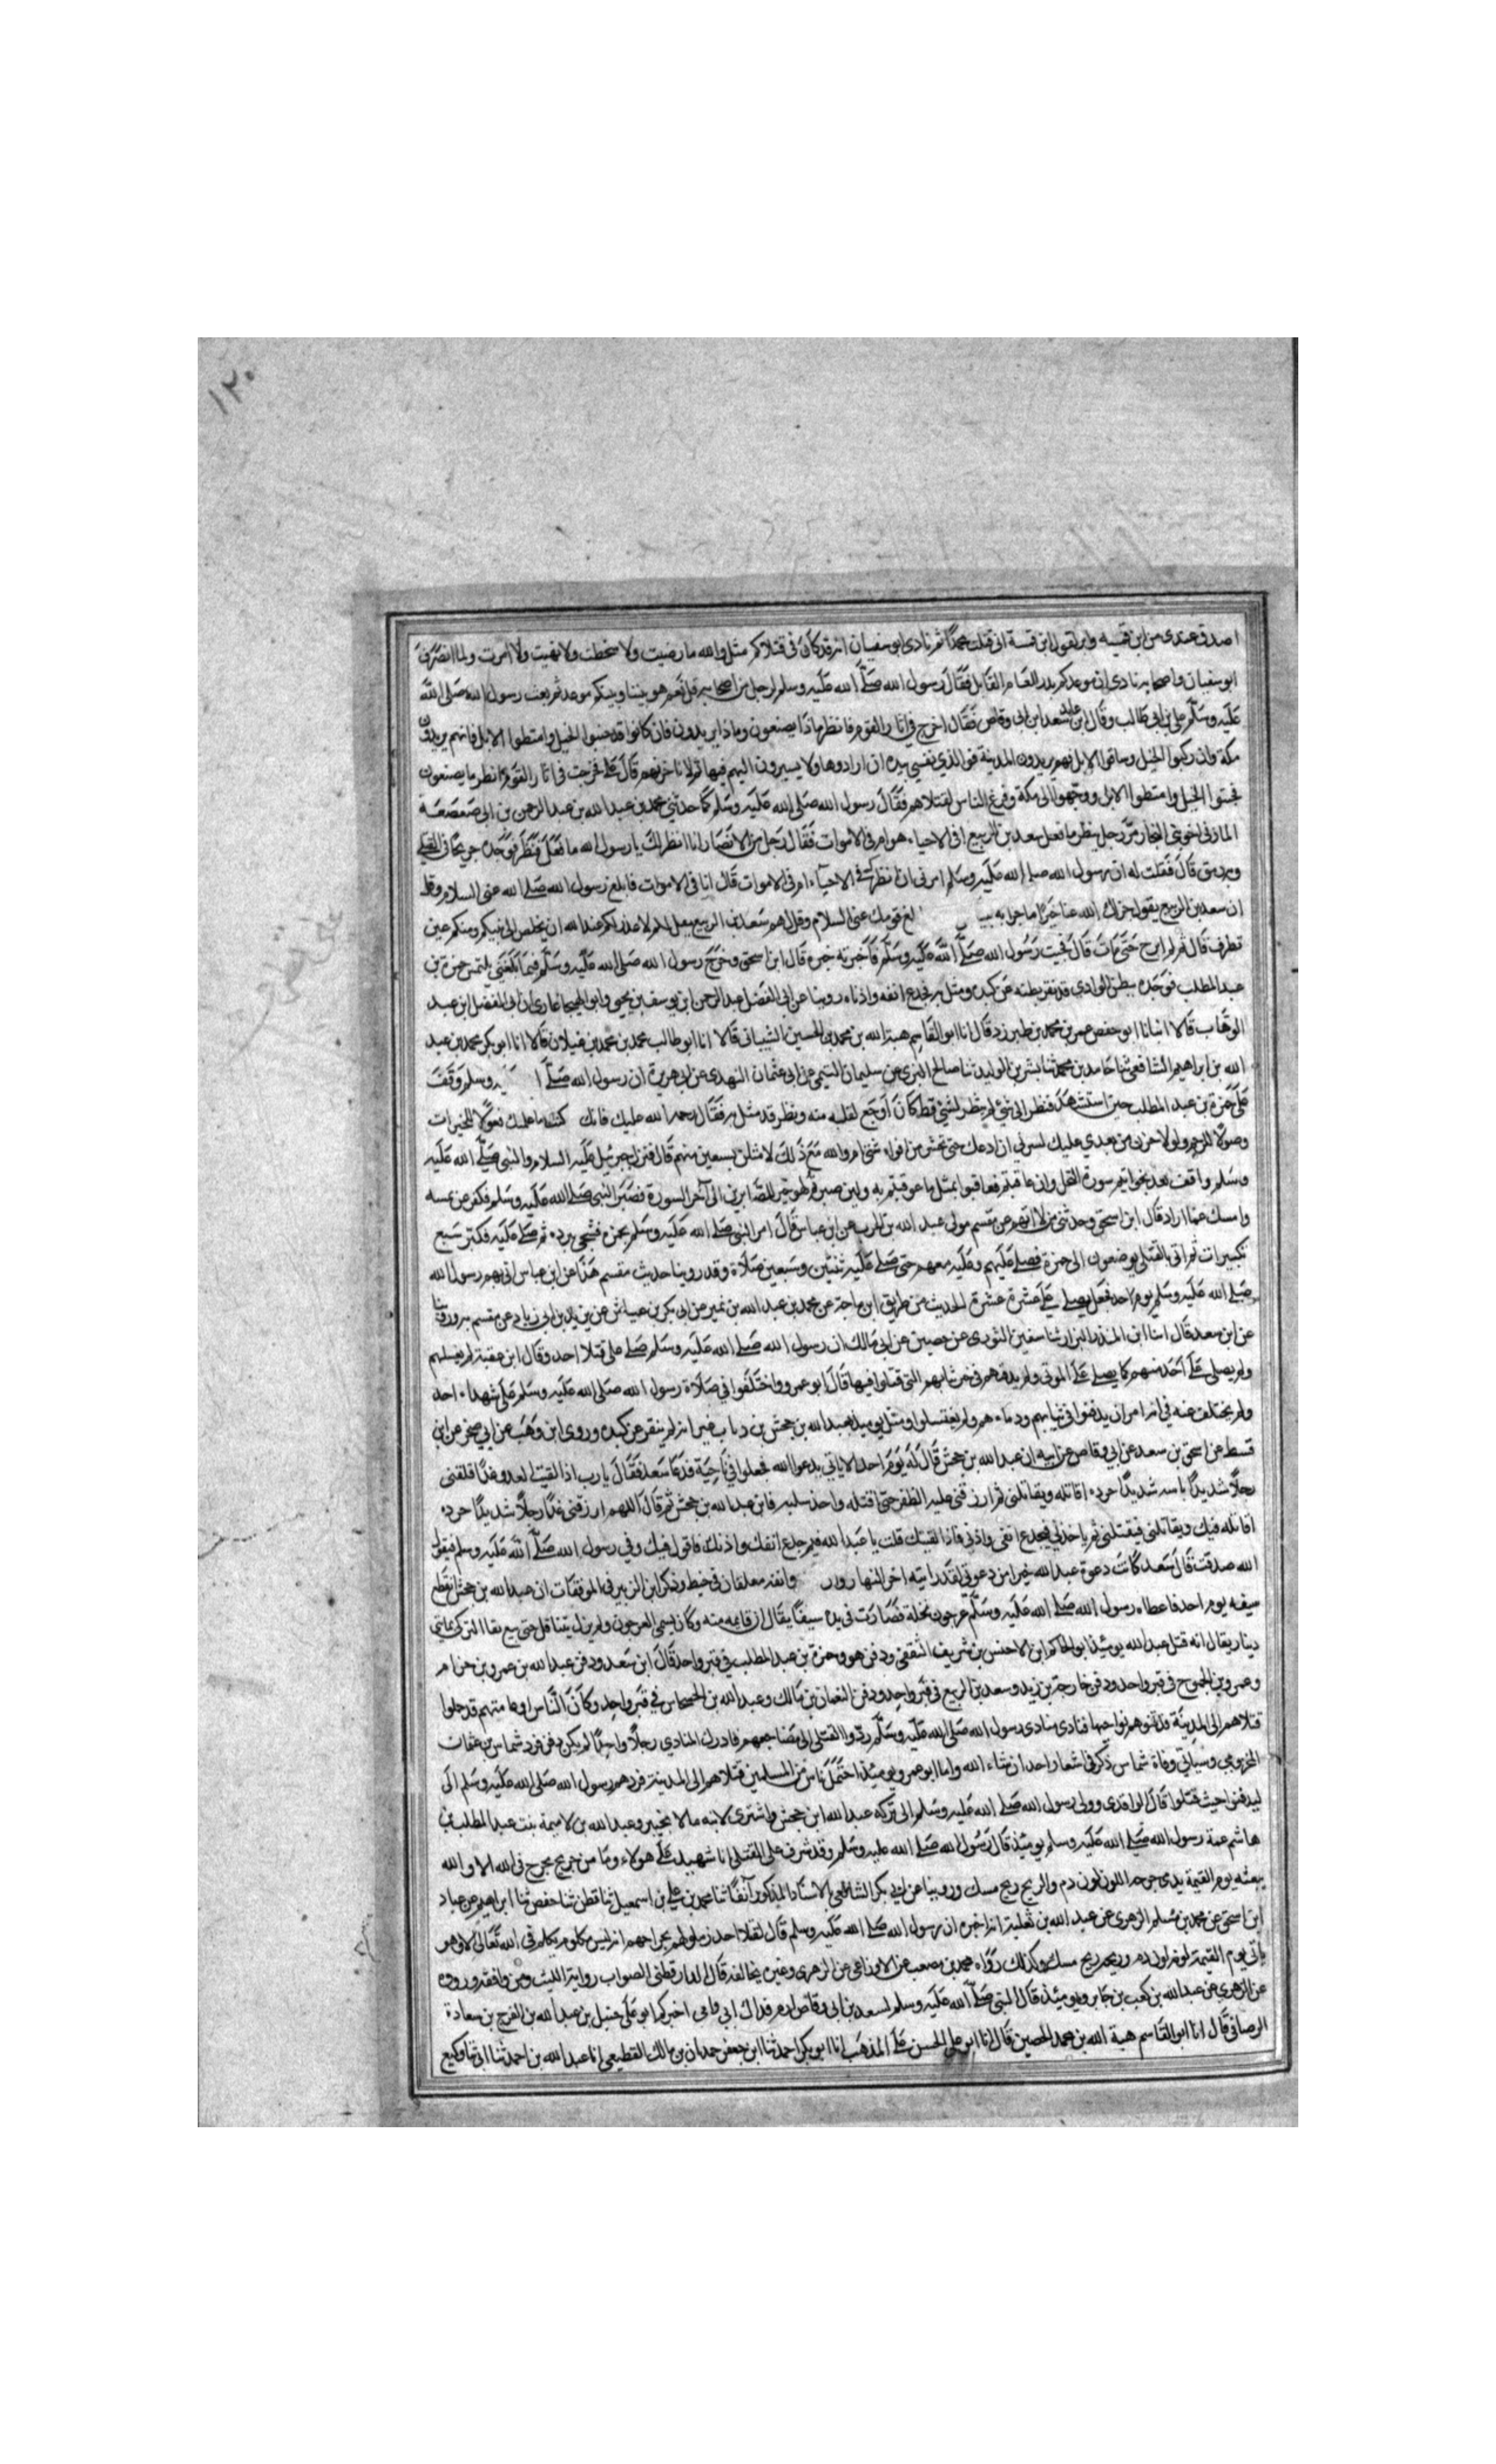 ١٢٠
اصدق عندى من ابن قميه وابر لقول ابن قمية انى قتلت محمدا ثم نادى ابو سفيان انه قد كان فى قتلاكم مثل والله ما رضيت ولا سخطت ولا نهيت ولا امرت ولما انصرف
ابو سفيان واصحابه نادى ان موعدكم بدر العام القابل فقال رسول الله صلى الله عليه وسلم لرجل من اصحابه قل نعم هو بيننا وبينكم موعد ثم بعث رسول الله صلى الله
عليه وسلم على بن ابى طالب وقال ابن عايد سعد ابن ابى وقاص فقال اخرج في اثار القوم فانظر ماذا يصنعون وماذا يريدون فان كانوا قد جنبوا الخيل وامتطوا الابل فانهم يريدون
مكة وان ركبوا الخيل وساقوا الابل فهم يريدون المدينة فوالذي نفسي بيده ان ارادوها ولا يسيرون اليهم فيها ثم لاناجزنهم قال على فخرجت فى اثار القوم انظر ما يصنعون
فجنبوا الخيل وامتطوا الابل ووجهوا الى مكة وفرغ الناس لقتلاهم فقال رسول الله صلى الله عليه وسلم كما حدثني محمد بن عبد الله بن عبد الرحمن بن ابى صعصعة
المازنى اخو بنى النجار من رجل ينظر ما فعل سعد بن الربيع افى الاحياء هو ام فى الاموات فقال رجل من الانصار انا انظر لك يا رسول الله ما فعل فنظر فوجده جريحا فى القتلى
وبه رمق قال فقلت له ان رسول الله صلى الله عليه وسلم امرنى ان انظر افى الاحياء ام فى الاموات قال انا فى الاموات فابلغ رسول الله صلى الله عليه عنى السلام وقل
ان سعد بن الربيع يقول جزاك الله عنا خيرا ما جزا به لغ قومك عنى السلام وقل لهم سعد بن الربيع يقول لكم لا عذر لكم عند الله ان يخلص الى نبيكم ومنكم عين
تطرف قال ثم لم ابرح حتى مات قال فجيت رسول الله صلى الله عليه وسلم فاخبرته خبره قال ابن اسحق وخرج رسول الله صلى الله عليه وسلم فيما بلغني يلتمس حمزة بن
عبد المطلب فوجده ببطن الوادي قد بقر بطنه عن كبده ومثل به فجدع انفه واذناه روينا عن ابى الفضل عبد الرحمن ابن يوسف بن يحيى وابو الهيجا غازى ان ابى الفضل ابن عبد
الوهاب قالا انبانا ابو حفص عمر بن محمد بن طبرزد قال انا ابو القاسم هبة الله بن محمد بن الحسين الشيبانى قالا انا ابو طالب محمد بن محمد بن غيلان قالا انا ابو بكر محمد بن عبد
الله بن ابراهيم الشافعي ثنا حامد بن محمد ثنا بشر بن الوليد ثنا صالح المرى عن سليمان التيمي عن ابى عثمان النهدى عن ابى هريرة ان رسول الله صلى ا يه وسلم وقف
على حمزة بن عبد المطلب حين استشهد فنظر الى شئ لم ينظر لشئ قط كان اوجع لقلبه منه ونظر قد مثل به فقال رحمه الله عليك فانك كنت ما علمتك فعولا للخيرات
وصولا للرحم ولولا حزن من بعدي عليك لسرني ان ادعك حتى تحشر من افواه شتى ام والله مع ذلك لامثلن بسبعين منهم قال فنزل جبرئيل عليه السلام والنبى صلى الله عليه
وسلم واقف بعد بخواتيم سورة النحل وان عاقبتم فعاقبوا بمثل ما عوقبتم به ولين صبرتم لهو خير للصابرين الى آخر السورة فصبر النبى صلى الله عليه وسلم فكفر عن يمينه
وامسك عما اراد قال ابن اسحق وحدثنى من لا اتهم عن مقسم مولى عبد الله بن الحرب عن ابن عباس قال امر النبى صلى الله عليه وسلم بحمزه فسجى ببرده ثم صلى عليه فكبر سبع
تكبيرات ثم اتى بالقتلى يوضعون الى حمزة فصلى عليهم وعليه معهم حتى صلى عليه ثنتين وسبعين صلاة وقد روينا حديث مقسم هذا عن ابن عباس اتى بهم رسول الله
صلى الله عليه وسلم يوم احد فجعل يصلى على عشرة عشرة الحديث من طريق ابن ماجة عن محمد بن عبد الله بن نمير عن ابى بكر بن عياش عن يزيد بن ابى زياد عن مقسم به وروينا
عن ابن سعد قال انا ابن المنذر البزار ثنا سفين الثورى عن حصين عن ابى مالك ان رسول الله صلى الله عليه وسلم صلى على قتلا احد وقال ابن عقبة لم يغسلهم
ولم يصلى على احد منهم كما يصلى على الموتى ولم يدفنهم فى غير ثيابهم التى قتلوا فيها قال ابو عمر وواختلفوا في صلاة رسول الله صلى الله عليه وسلم على شهداء احد
ولم يختلف عنه في انه امر ان يدفنوا فى ثيابهم ودماءهم ولم يغتسلوا ومثل يوميذ بعبد الله بن جحش بن رياب غير انه لم يبقر عن كبده وروى ابن وهب عن ابى صخر عن ابن
قسيط عن اسحق بن سعد عن ابي وقاص عن ابيه ان عبد الله بن جحش قال له يوم احد الا ياتي يدعوا الله فجعلوا في ناحية فدعا سعد فقال يا رب اذا لقيت العدو غدا فلقنى
رجلا شديدا باسه شديدا حرده اقاتله ويقاتلنى ثم ارزقنى عليه الظفر حتى اقتله واخذ سلبه فامن عبد الله بن جحش ثم قال اللهم ارزقنى غدا رجلا شديدا حرده
اقاتله فيك ويقاتلنى فيقتلنى ثم ياخذنى فيجدع انفى واذنى فاذا لقيتك قلت يا عبد الله فيم جدع انفك واذنك فاقول فيك وفي رسول الله صلى الله عليه وسلم فيقول
الله صدقت قال سعد كانت دعوة عبد الله خيرا من دعوتى لقد رايته اخر النهار وانفه معلقان فى خيط وذكر ابن الزبير فى الموفقات ان عبد الله بن جحش انقطع
سيفه يوم احد فاعطاه رسول الله صلى الله عليه وسلم عرجون نخلة فصارت فى يده سيفا يقال ان قايمه منه وكان يسمى العرجون ولم يزل يتناقل حتى بيع بغا التركى بمايتى
دينار يقال انه قتل عبد الله يوميذ ابو الحاكم ابن الاحنس بن شريف الثقفى ودفن هو وحمزة بن عبد المطلب في قبر واحد قال ابن سعد ودفن عبد الله بن عمرو بن حزام
وعمرو بن الجموح في قبر واحد ودفن خارجة بن زيد وسعد بن الربيع في قبر واحد ودفن النعمان بن مالك وعبد الله بن الحسحاس في قبر واحد وكان الناس او عامتهم قد حملوا
قتلاهم الى المدينة فدفنوهم نواحيها فنادى منادى رسول الله صلى الله عليه وسلم ردوا القتلى الى مضاجعهم فادرك المنادي رجلا واحدا لم يكن دفن فرد شماس بن عثمان
المخزومى وسياتي وفاة شماس ذكر في اشعار احد ان شاء الله واما ابو عمر ويوميذ احتمل ناس من المسلمين قتلاهم الى المدينة فردهم رسول الله صلى الله عليه وسلم الى
ليدفنوا حيث قتلوا قال الواقدى وولى رسول الله صلى الله عليه وسلم الى تركه عبد الله ابن جحش واشترى لابنه مالا بخيبر وعبد الله بن لاميمة بنت عبد المطلب بن
هاشم عمة رسول الله صلى الله عليه وسلم يوميذ قال رسول الله صلى الله عليه وسلم وقد شرف على القتلى انا شهيد على هولاء وما من جريح يجرح فى الله الا والله
يبعثه يوم القيمة يدمى جرحه اللون لون دم والريح ريح مسك وروينا عن ابى بكر الشافعى الاسناد المذكور آنفا ثنا محمد بن على بن اسمعيل ثنا قطن ثنا حفص ثنا ابراهيم عن عباد
ابن اسحق عن محمد بن مسلم الزهرى عن عبد الله بن ثعلبة انه اخبره ان رسول الله صلى الله عليه وسلم قال لقتلا احد زملوهم بجراحهم انه ليس مكلوم يكلم فى الله تعالى الا وهو
ياتى يوم القيمة لونه لون دم وريحه ريح مسك وكذلك رواه محمد بن مصعب عن الاوزاعى عن الزهرى وغيره يخالفه قال الدارقطنى الصواب رواية الليث ومن وافقه ورووه
عن الزهرى عن عبد الله بن كعب بن جابر ويوميذ قال النبى صلى الله عليه وسلم لسعد بن ابى وقاص ارم فداك ابي وامى اخبركم ابو على حنبل بن عبد الله بن الفرج بن سعادة
الرصافى قال انا ابو القاسم هبة الله بن محمد الحصين قال انا ابو على الحسن على المذهب انا ابو بكر احمد ثنا ابن جعفر حمدان بن مالك القطيعى انا عبد الله بن احمد ثنا ابى ثنا وكيع